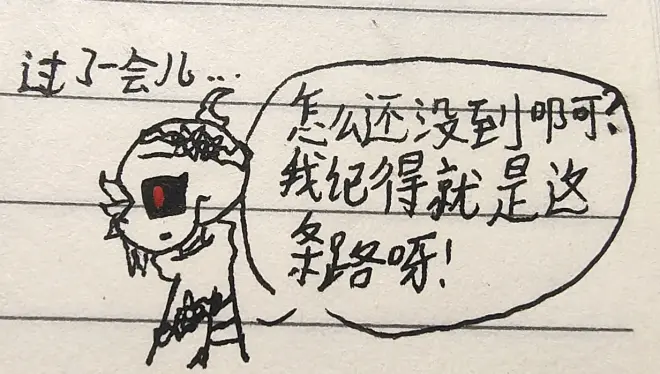 过了一会儿...
怎么还没到啊?
我记得就是这
条路呀!